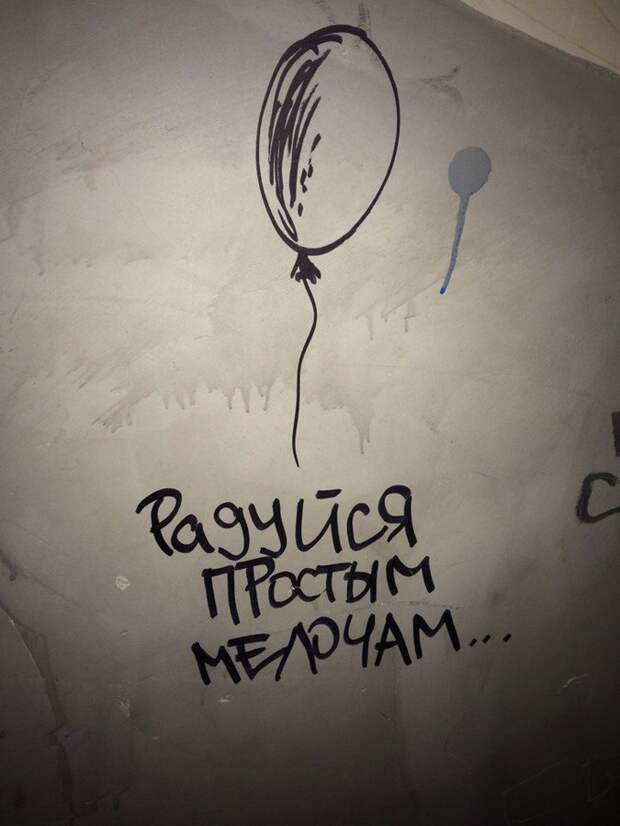 Радуйся
ПРОСТЫМ
МЕЛОЧАМ...